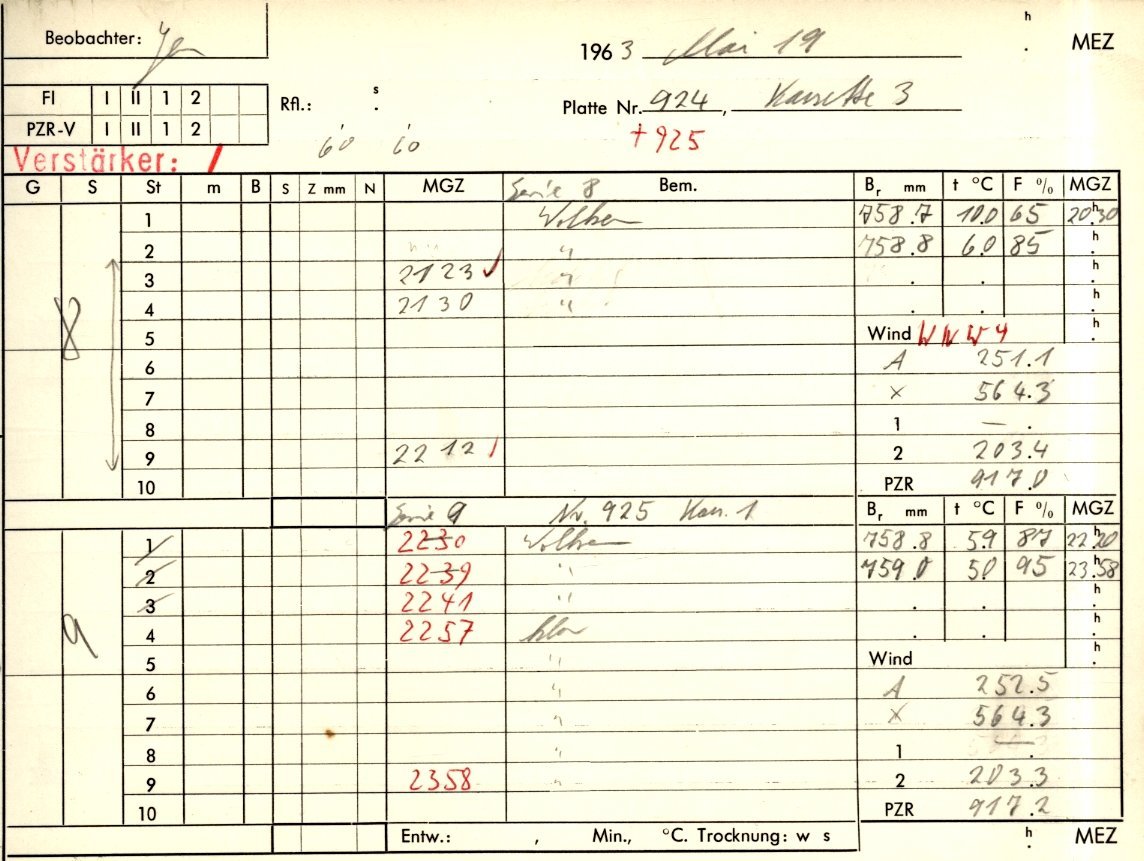 Beobachter:
1963 Mai 19 h . MEZ
FI I II 1 2
Rfl.: s .
Platte Nr. 924, Kassette 3
PZR-V I II 1 2
+ 925
Verstärker: /
60 60
G S St m B S Z mm N MGZ Serie 8 Bem. Br mm t °C F % MGZ
1 Wolken 758.7 10.0 65 20h.30
2 " 758.8 6.0 85 h .
3 2123 ✓ " . . h .
4 2130 " . . h .
8
5 Wind WNW 4 h .
6 A 251.1
7 × 564.3
8 1 — .
9 2212 / 2 203.4
10 PZR 917.0
Serie 9 Nr. 925 Kass. 1 Br mm t °C F % MGZ
1 2230 Wolken 758.8 5.9 87 22h.20
2 2239 " 759.0 5.0 95 23h.58
3 2241 " . . h .
4 2257 klar . . h .
9
5 " Wind h .
6 " A 252.5
7 " × 564.3
8 " 1 — .
9 2358 " 2 203.3
10 PZR 917.2
Entw.: , Min., °C. Trocknung: w s h . MEZ